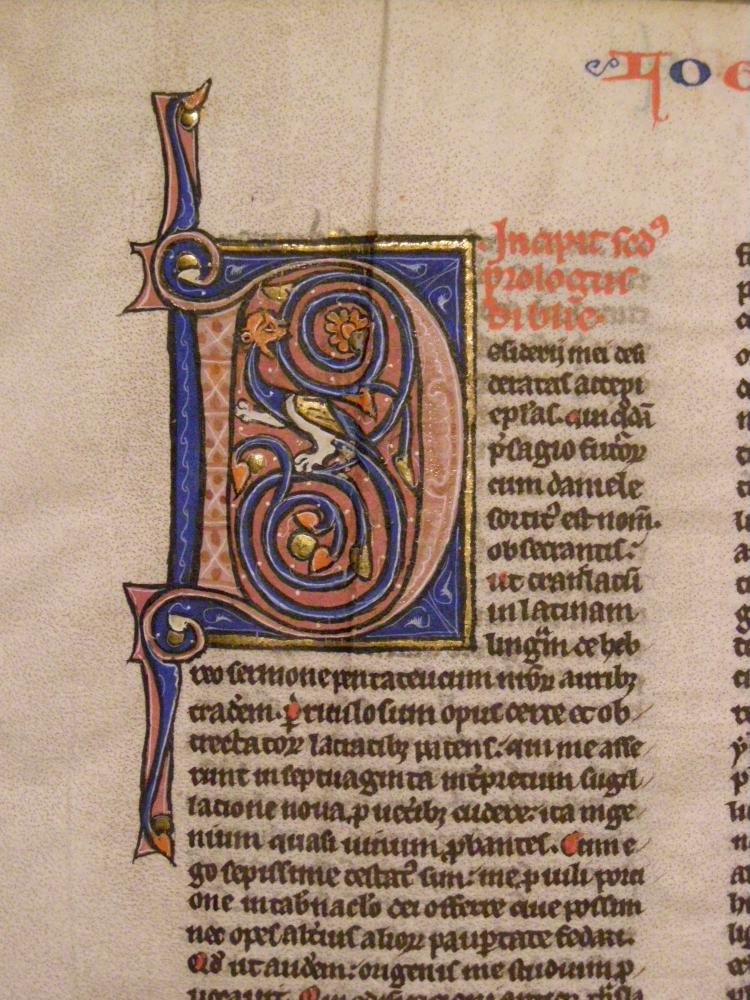 LOE
Incipit scd'ꝰ
prologus
bibłie.
D
esiderij mei desi
deratas accepi
epłas. qui q̄dā
p̄sagio futōꝝ
cum daniele
sortit᷑ est nom̄.
obsecrantis:
ut translatū
in latinam
linguā de heb
reo sermone pentateucum nr̄oꝝ aurib;
tradem. Periculosum opus certe et ob
trectatoꝝ latratib; patens: qui me asse
runt in septuaginta int̄pretum sugil
latione noua, p ueterib; cudere: ita inge
nium quasi uinum ꝓbantes. Cum e
go sepissime testat᷑ sim: me, p uili porci
one in tab̄nac̄lo dei offerre que possim
nec opes alt̄ius alioꝝ paup̄tate fedari.
Qd' ut audem: origenis me studium p